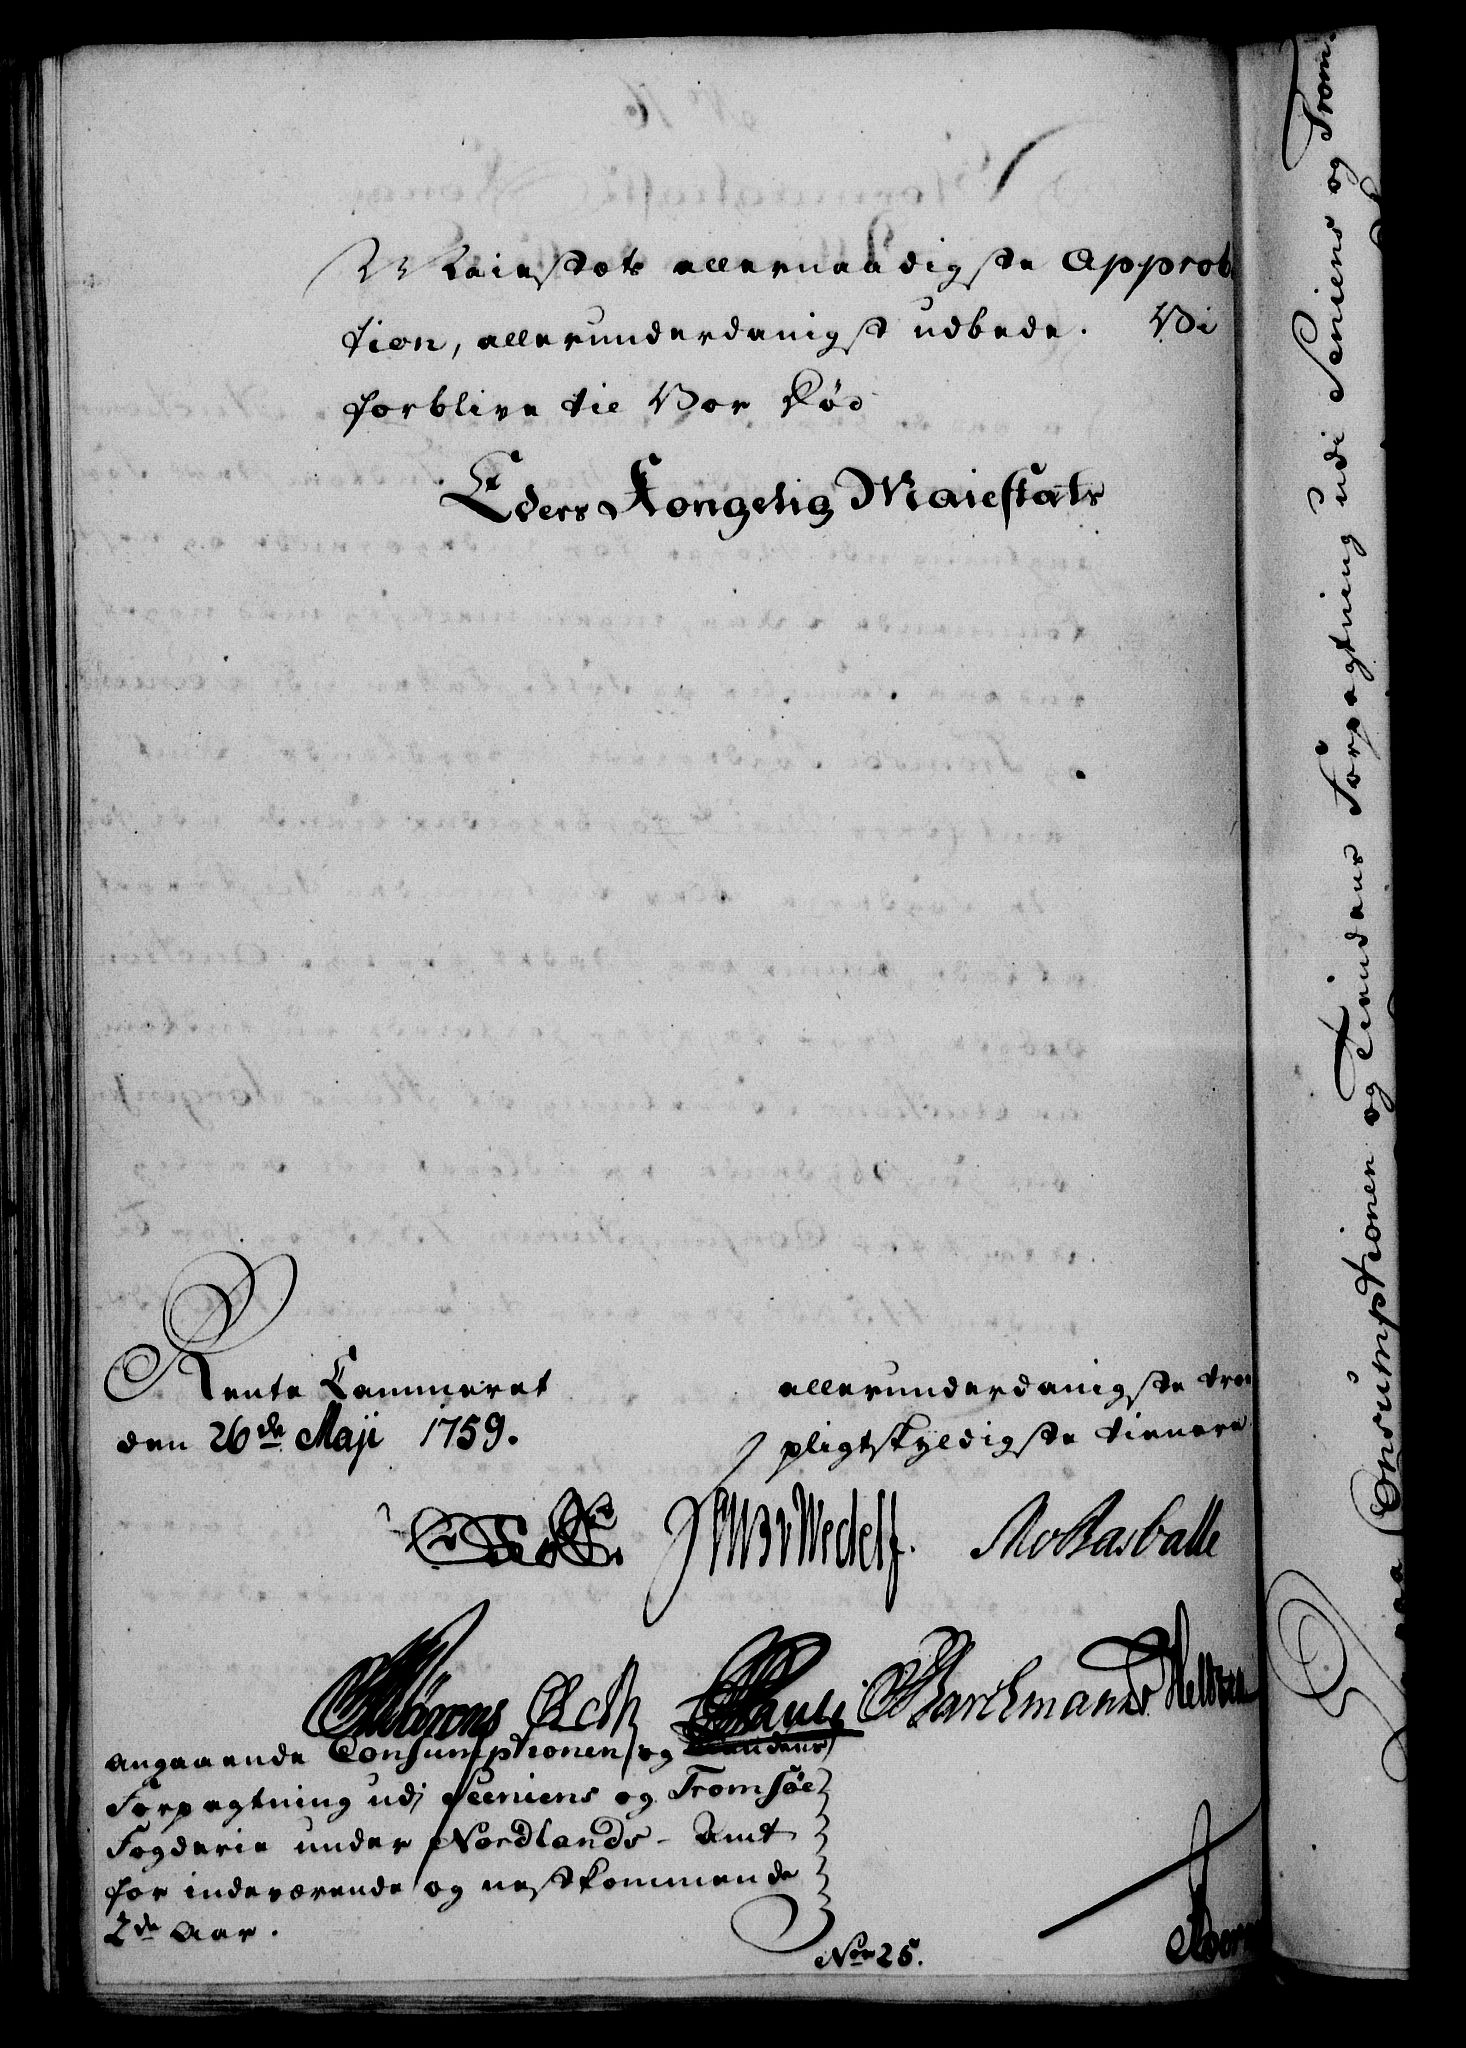 Maiestæts allernaadigste Approba
tion, allerunderdanigst udbede. Vi
forblive til Vor Död
Eders Kongelig Maiestæts
Rente Cammeret
den 26de Maji 1759.
allerunderdanigste troe
pligtskyldigste tienere
Wedell.
Barchmann
angaaende Consumptionen og Tiendens
Forpagtning udj Seeniens og Tromsöe
Fogderie under Nordlands-Amt
for indeværende og nestkommende
2de Aar.
No 25.
paa Consumptionen og Tiendens Forpagtning udi Seniens og Trom